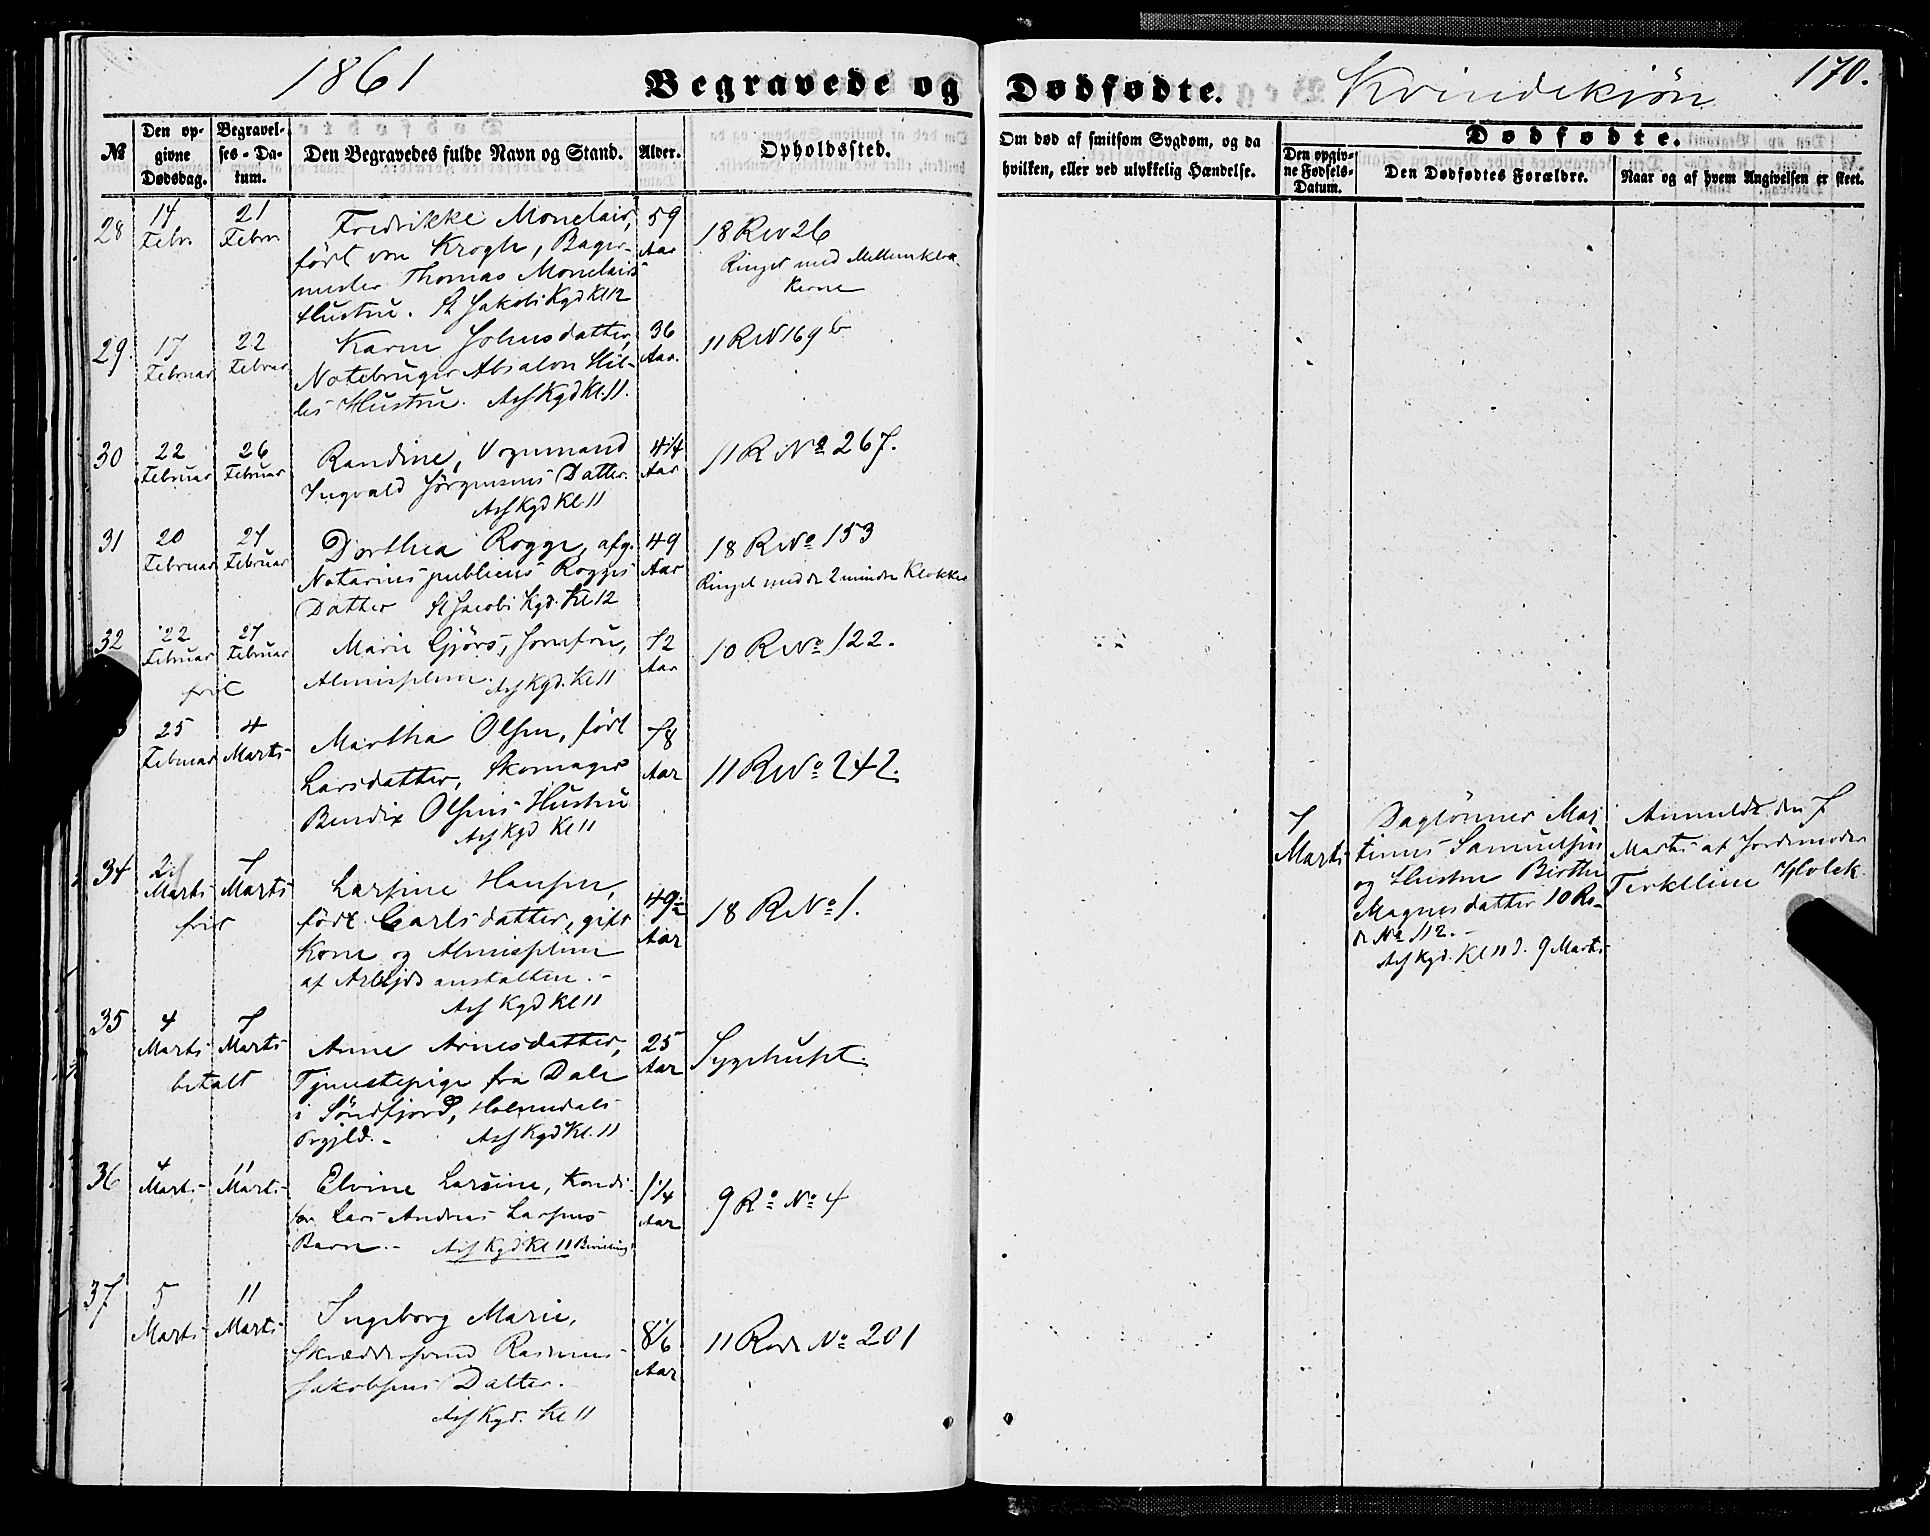 1861
Begravede og
Dødfødte.
Kvindekjøn
170.
№
Den op-
givne
Dødsdag.
Begravel-
ses-Da-
tum.
Den Begravedes fulde Navn og Stand.
Alder.
Opholdssted.
Om død af smitsom Sygdom, og da
hvilken, eller ved ulykkelig Hændelse.
Dødfødte.
Den opgiv-
ne Fødsels-
Datum.
Den Dødfødtes Forældre.
Naar og af hvem Angivelsen er skeet.
28
14
Febr.
21
Febr.
Fredrikke Monclair,
født von Krogh, Bager-
mester Thomas Monclairs
Hustru. St Jakobs Kgd Kl 12
59
Aar
18 R № 26
Ringet med Mellemklok-
kerne
29.
17
Februar
22
Februar
Karen Johnsdatter,
Notebruger Absalon Hil-
les Hustru. Ass Kgd Kl. 11.
36
Aar.
11 R № 169 b
30
22
Februar
26
Februar
Randine, Vognmand
Ingvald Jörgensens Datter.
Ass Kgd Kl. 11
4 1/4
Aar
11 R № 267.
31
20
Februar
27
Februar
Dorthea Rogge, afg.
Notarius publicus Rogges
Datter St Jacobs Kgd. Kl 12
49
Aar
18 R № 153
Ringet med de 2 mindre Klokker
32
22
Februar
27
Februar
frit
Marie Gjörs, Jomfru,
Almisselem. Ass Kgd. Kl 11
72
Aar
10 R № 122.
25
Februar
4
Marts
Martha Olsen, født
Larsdatter, Skomager
Bendix Olsens Hustru
Ass Kgd Kl 11
78
Aar
11 R № 242.
34
2
Marts
7
Marts
frit
Larsine Hansen,
født Carlsdatter, gift
Kone og Almisselem
af Arbejdsanstalten.-
Ass Kgd Kl 11
49 1/2
Aar
18 R № 1.
35
4
Marts
7
Marts
betalt
Anne Arnesdatter,
Tjenestepige fra Dale
i Söndfjord, Holmedals
Prgjld.-
Ass Kgd Kl. 11
25
Aar
Sygehuset.
36
4
Marts
11
Marts
Elvine Larsine, Kondi-
tor Lars Andreas Larsens
Barn.- Ass Kgd Kl 11
1 1/4
Aar
9 R № 4
37
5
Marts
11
Marts
Ingeborg Marie,
Skræddersvend Rasmus
Jakobsens Datter.
Ass Kgd. Kl 11
8 1/6
Aar
11 Rode № 201
7
Marts
Daglönner Mar
tinus Samuelsen
og Hustru Birthe
Magnesdatter 10 Ro-
de № 112.-
Ass Kgd. Kl 11 d. 9 Marts
Anmeldt den 7
Marts af Jordemoder
Terkeline Holck.